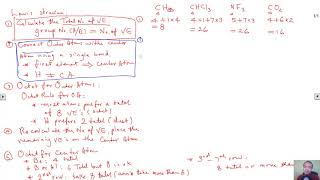 Lewis structure:
① Calculate the Total No of VE
group No. (A/E) = No. of VE
② Connect Outer Atoms with center
Atom using a single bond
* first element → Center Atom
* H ≠ C A
③ Octet for Outer Atoms:
Octet Rule for O.A:
* most atoms prefer a total
of 8 VE's (octet)
* H prefers 2 total (duet)
④ Re calculate the No of VE, place the
remaining VE's on the Center Atom.
⑤ Octet for Center Atom
* Be: 4 total
* B or Al: 6 Total but 8 is ok
* 2nd row: take 8 total (can't take more than 8)
CH4
4+1×4
= 8
4+1+7×3
= 26
NF3
5+7×3
= 26
CO2
4+6×2
= 16
8 total or more than